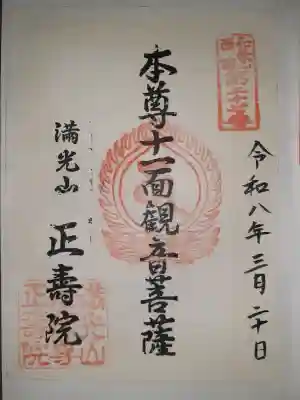 令和八年三月二十日
本尊十一面観音菩薩
満光山
正壽院